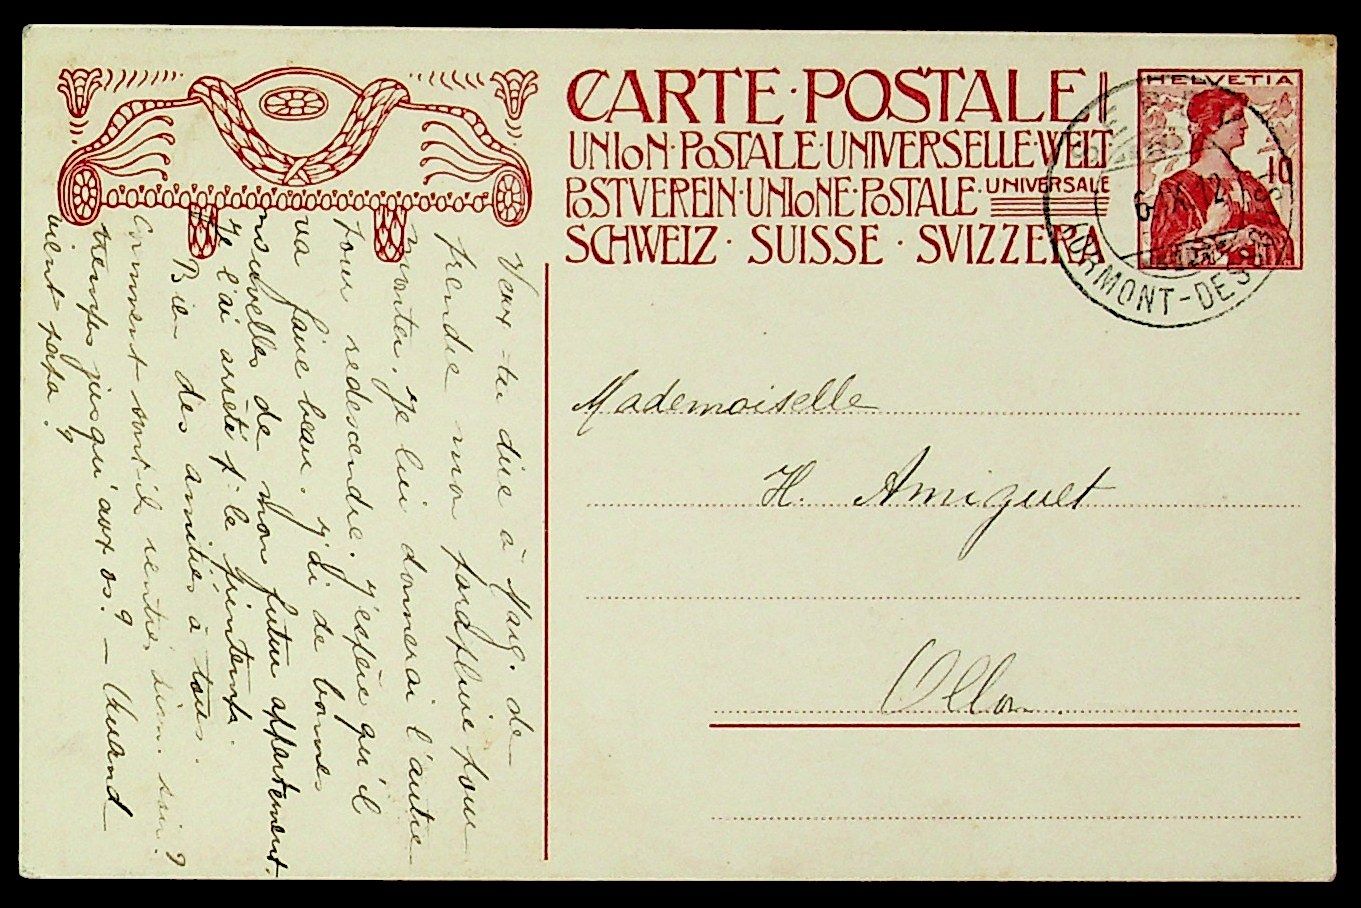 CARTE · POSTALE
UNION · POSTALE · UNIVERSELLE · WELT
POSTVEREIN · UNIONE · POSTALE · UNIVERSALE
SCHWEIZ · SUISSE · SVIZZERA
HELVETIA
10
ORMONT-DESSUS
Mademoiselle
H. Amiguet
Ollon.
Veux-tu dire à Marg. de
prendre mon parapluie pour
monter. Je lui donnerai l'autre
pour redescendre. J'espère qu'il
va faire beau. J'ai de bonnes
nouvelles de mon futur appartement.
Je l'ai arrêté p. le printemps.
Bien des amitiés à tous.
Comment sont-ils rentrés, bien. sain?
trempés jusqu'aux os? — Quand
vient papa?